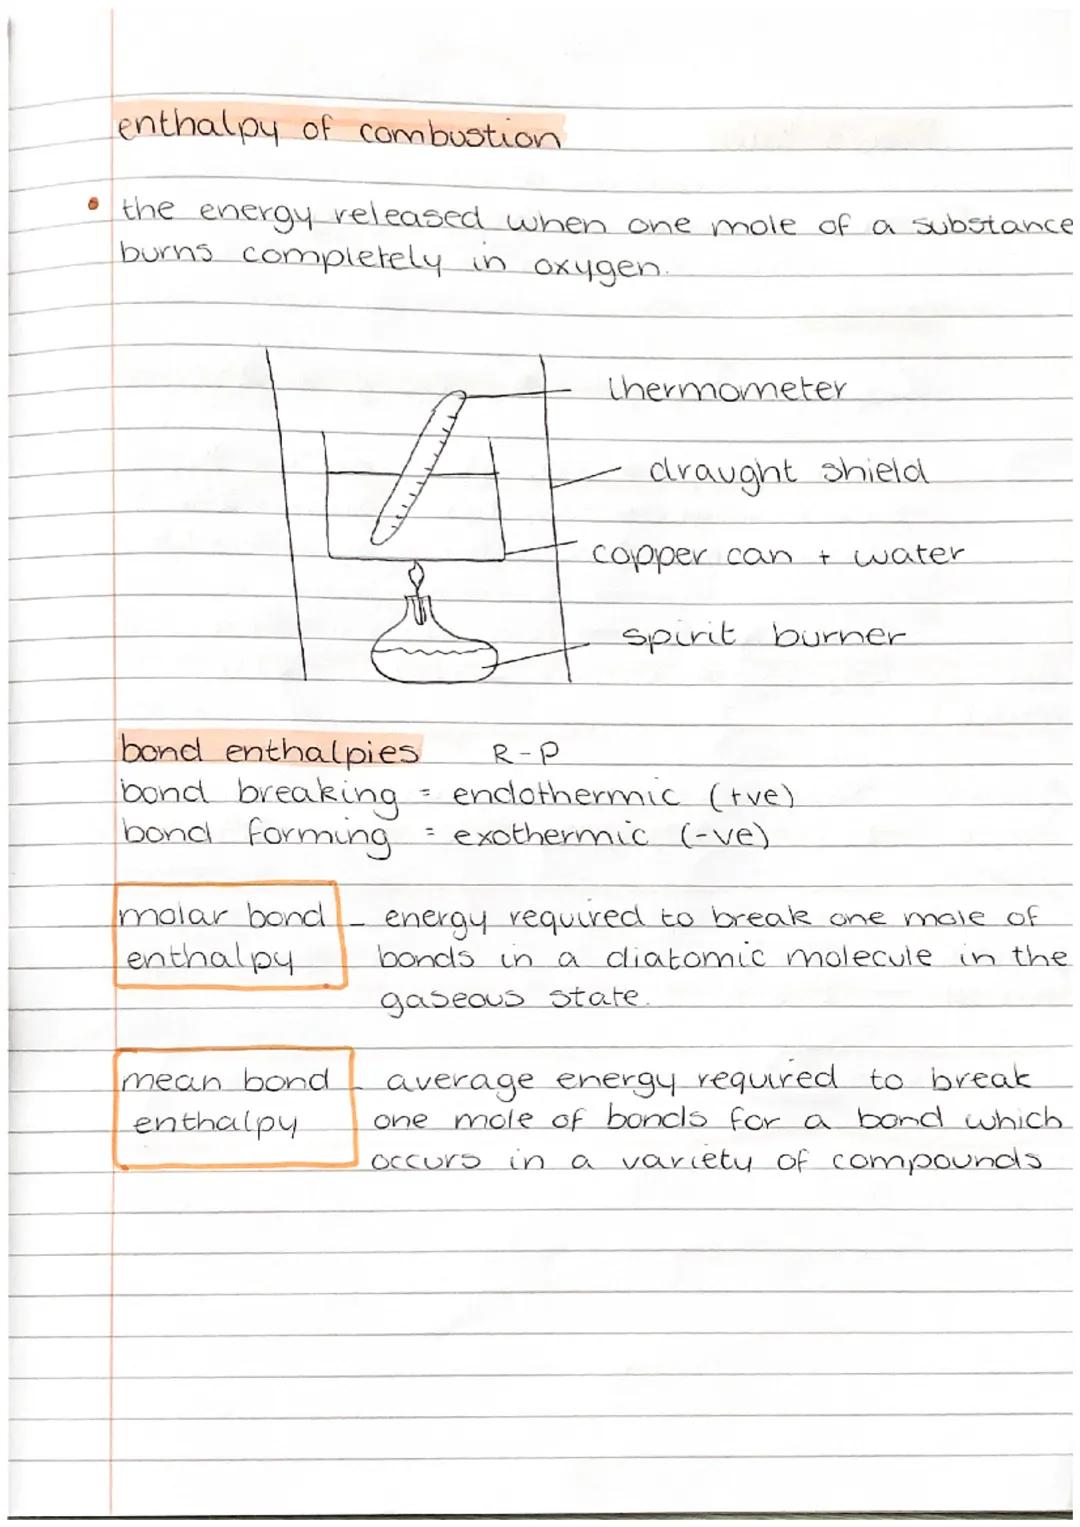 enthalpy of combustion
• the energy released when one mole of a substance
burns completely in oxygen.
thermometer
draught shield
copper can + water
spirit burner
bond enthalpies R-P
bond breaking = endothermic (+ve)
bond forming = exothermic (-ve)
molar bond - energy required to break one mole of
enthalpy bonds in a diatomic molecule in the
gaseous state.
mean bond - average energy required to break
enthalpy one mole of bonds for a bond which
occurs in a variety of compounds